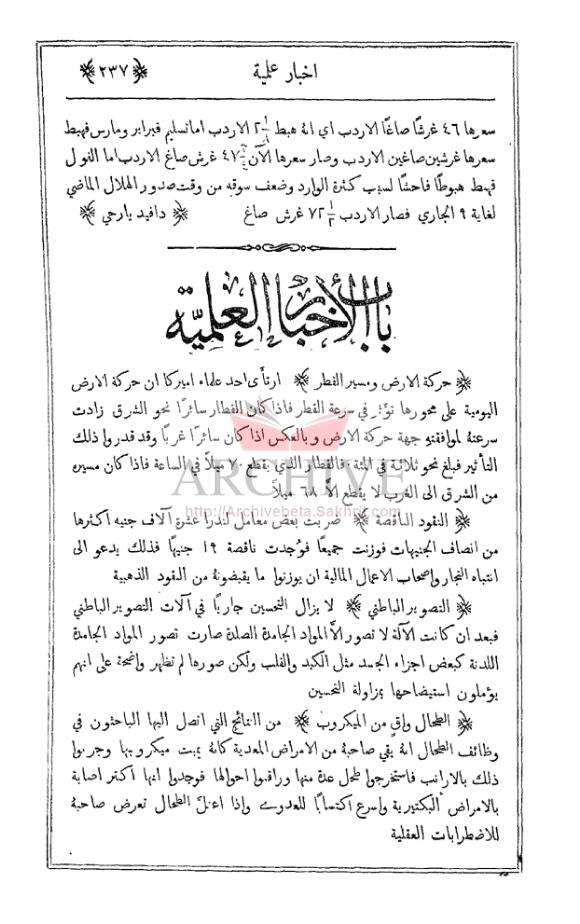 اخبار علمية ﴿ ٢٣٧ ﴾
سعرها ٤٦ غرشًا صاغًا الاردب اي انه هبط ٢ ١/٢ الاردب اما تسليم فبراير ومارس فهبط
سعرها غرشين صاغين الاردب وصار سعرها الآن ٤٧ غرش صاغ الاردب اما الفول
فهبط هبوطًا فاحشًا لسبب كثرة الوارد وضعف سوقه من وقت صدور الهلال الماضي
لغاية ٩ الجاري فصار الاردب ٧٢ ١/٢ غرش صاغ ﴿ دافيد يارحي ﴾
باب الأخبار العلمية
﴿ حركة الارض ومسير القطر ﴾ ارتأى احد علماء اميركا ان حركة الارض
اليومية على محورها تؤثر في سرعة القطر فاذا كان القطار سائرًا نحو الشرق زادت
سرعته لموافقته جهة حركة الارض وبالعكس اذا كان سائرًا غربًا وقد قدروا ذلك
التأثير فبلغ نحو ثلاثة في المئة . فالقطار الذي يقطع ٧٠ ميلاً في الساعة فاذا كان مسيره
من الشرق الى الغرب لا يقطع الاَّ ٦٨ ميلاً
﴿ النقود الناقصة ﴾ ضربت بعض معامل لندرا عشرة آلاف جنيه اكثرها
من انصاف الجنيهات فوزنت جميعًا فوُجدت ناقصة ١٩ جنيهًا فذلك يدعو الى
انتباه التجار واصحاب الاعمال المالية ان يوزنوا ما يقبضونه من النقود الذهبية
﴿ التصوير الباطني ﴾ لا يزال التحسين جاريًا في آلات التصوير الباطني
فبعد ان كانت الآلة لا تصور الاَّ المواد الجامدة الصلدة صارت تصور المواد الجامدة
اللدنة كبعض اجزاء الجسد مثل الكبد والقلب ولكن صورها لم تظهر واضحة على انهم
يؤملون استيضاحها بمزاولة التحسين
﴿ الطحال واقٍ من الميكروب ﴾ من النتائج التي اتصل اليها الباحثون في
وظائف الطحال انه يقي صاحبه من الامراض المعدية كانه يميت ميكروبها وجربوا
ذلك بالارانب فاستخرجوا طحل عدة منها وراقبوا احوالها فوجدوا انها اكثر اصابة
بالامراض البكتيرية واسرع اكتسابًا للعدوى واذا اعتلَّ الطحال تعرض صاحبه
للاضطرابات العقلية
ARCHIVE
http://Archivebeta.Sakhrit.com